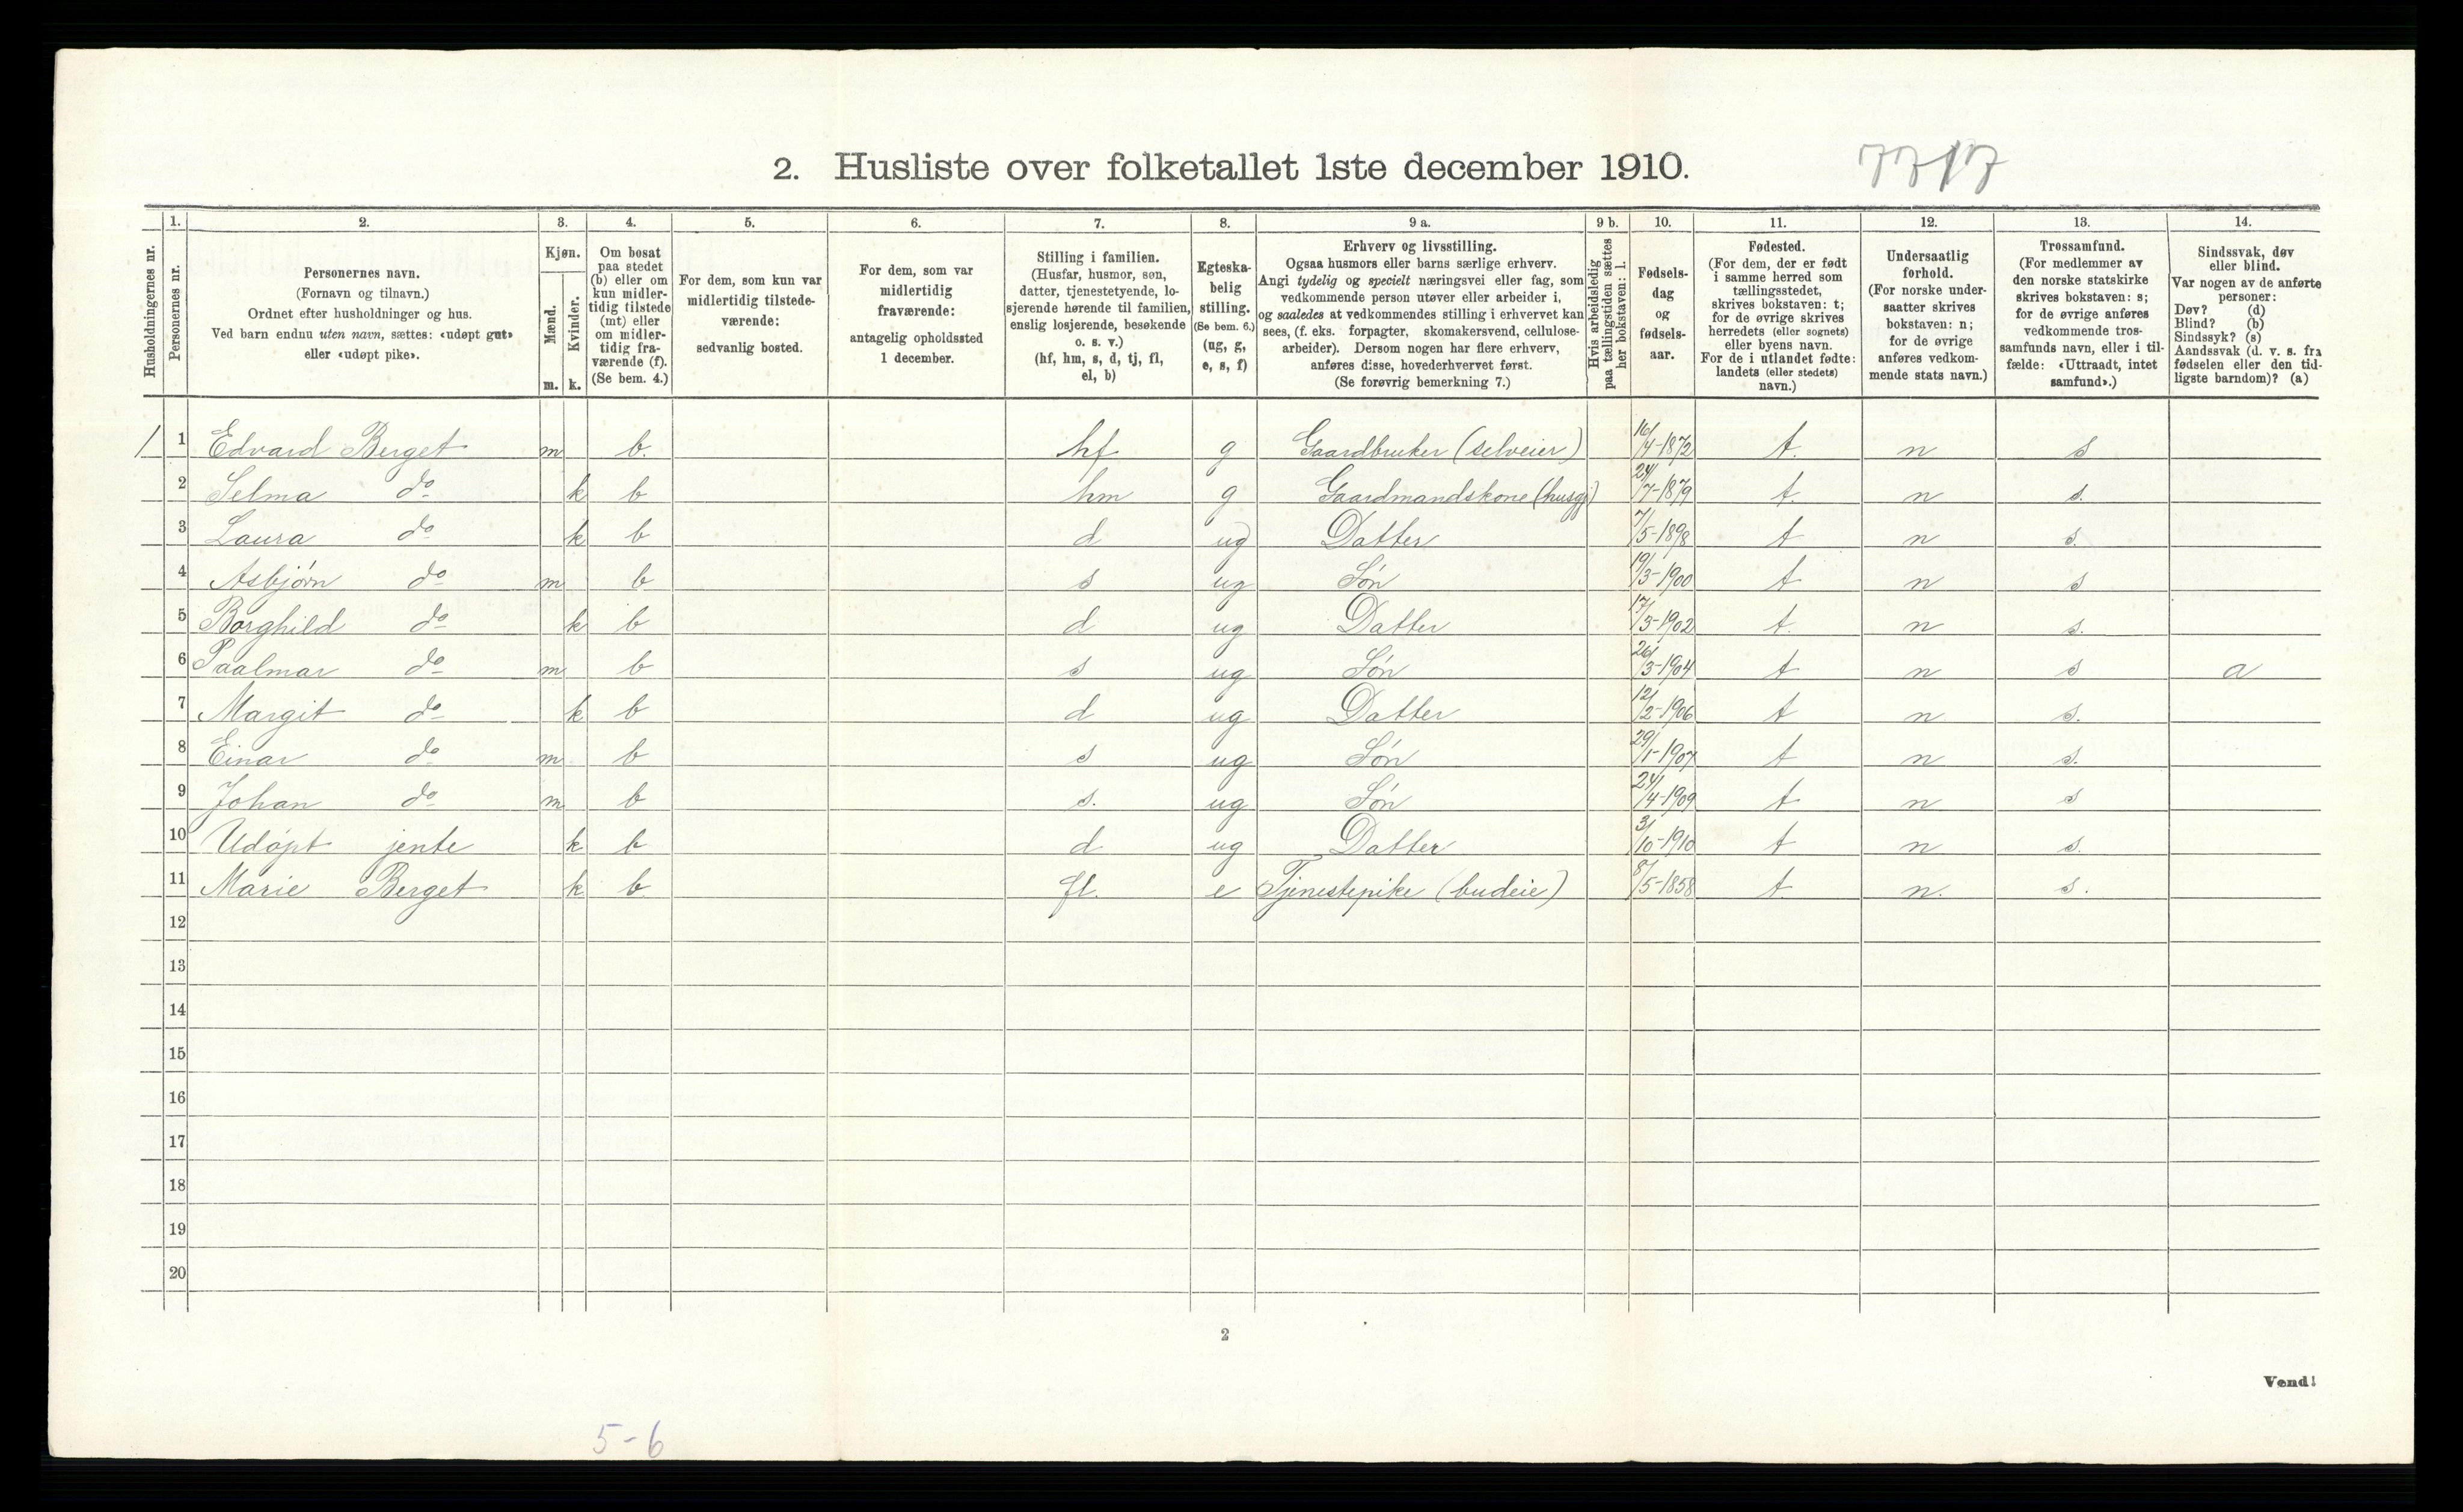 2. Husliste over folketallet 1ste december 1910.
1. 2. 3. 4. 5. 6. 7. 8. 9 a. 9 b. 10. 11. 12. 13. 14.
Husholdningernes nr.
Personernes nr.
Personernes navn.
(Fornavn og tilnavn.)
Ordnet efter husholdninger og hus.
Ved barn endnu uten navn, sættes: «udøpt gut»
eller «udøpt pike».
Kjøn.
Mænd.
Kvinder.
m. k.
Om bosat
paa stedet
(b) eller om
kun midler-
tidig tilstede
(mt) eller
om midler-
tidig fra-
værende (f).
(Se bem. 4.)
For dem, som kun var
midlertidig tilstede-
værende:
sedvanlig bosted.
For dem, som var
midlertidig
fraværende:
antagelig opholdssted
1 december.
Stilling i familien.
(Husfar, husmor, søn,
datter, tjenestetyende, lo-
sjerende hørende til familien,
enslig losjerende, besøkende
o. s. v.)
(hf, hm, s, d, tj, fl,
el, b)
Egteska-
belig
stilling.
(Se bem. 6.)
(ug, g,
e, s, f)
Erhverv og livsstilling.
Ogsaa husmors eller barns særlige erhverv.
Angi tydelig og specielt næringsvei eller fag, som
vedkommende person utøver eller arbeider i,
og saaledes at vedkommendes stilling i erhvervet kan
sees, (f. eks. forpagter, skomakersvend, cellulose-
arbeider). Dersom nogen har flere erhverv,
anføres disse, hovederhvervet først.
(Se forøvrig bemerkning 7.)
Hvis arbeidsledig
paa tællingstiden sættes
her bokstaven: l.
Fødsels-
dag
og
fødsels-
aar.
Fødested.
(For dem, der er født
i samme herred som
tællingsstedet,
skrives bokstaven: t;
for de øvrige skrives
herredets (eller sognets)
eller byens navn.
For de i utlandet fødte:
landets (eller stedets)
navn.)
Undersaatlig
forhold.
(For norske under-
saatter skrives
bokstaven: n;
for de øvrige
anføres vedkom-
mende stats navn.)
Trossamfund.
(For medlemmer av
den norske statskirke
skrives bokstaven: s;
for de øvrige anføres
vedkommende tros-
samfunds navn, eller i til-
fælde: «Uttraadt, intet
samfund».)
Sindssvak, døv
eller blind.
Var nogen av de anførte
personer:
Døv? (d)
Blind? (b)
Sindssyk? (s)
Aandssvak (d. v. s. fra
fødselen eller den tid-
ligste barndom)? (a)
1 1 Edvard Berget m b. hf g Gaardbruker (selveier) 16/4-1872 t. n s
2 Selma do k b hm g Gaardmandskone (husgj) 24/7-1879 t. n s.
3 Laura do k b d ug Datter 7/5-1898 t n s.
4 Asbjørn do m b s ug Søn 19/3-1900 t n s
5 Borghild do k b d ug Datter 17/3-1902 t. n s.
6 Paalmar do m b s ug Søn 26/3-1904 t n s a
7 Margit do k b d ug Datter 12/2-1906 t n s.
8 Einar do m b s ug Søn 29/1-1907 t n s.
9 Johan do m b s. ug Søn 24/4-1909 t n s
10 Udøpt jente k b d ug Datter 3/10-1910 t n s.
11 Marie Berget k b fl. e Tjenestepike (budeie) 8/5-1858 t. n. s.
12
13
14
15
16
17
18
19
20
2
Vend!
5-6